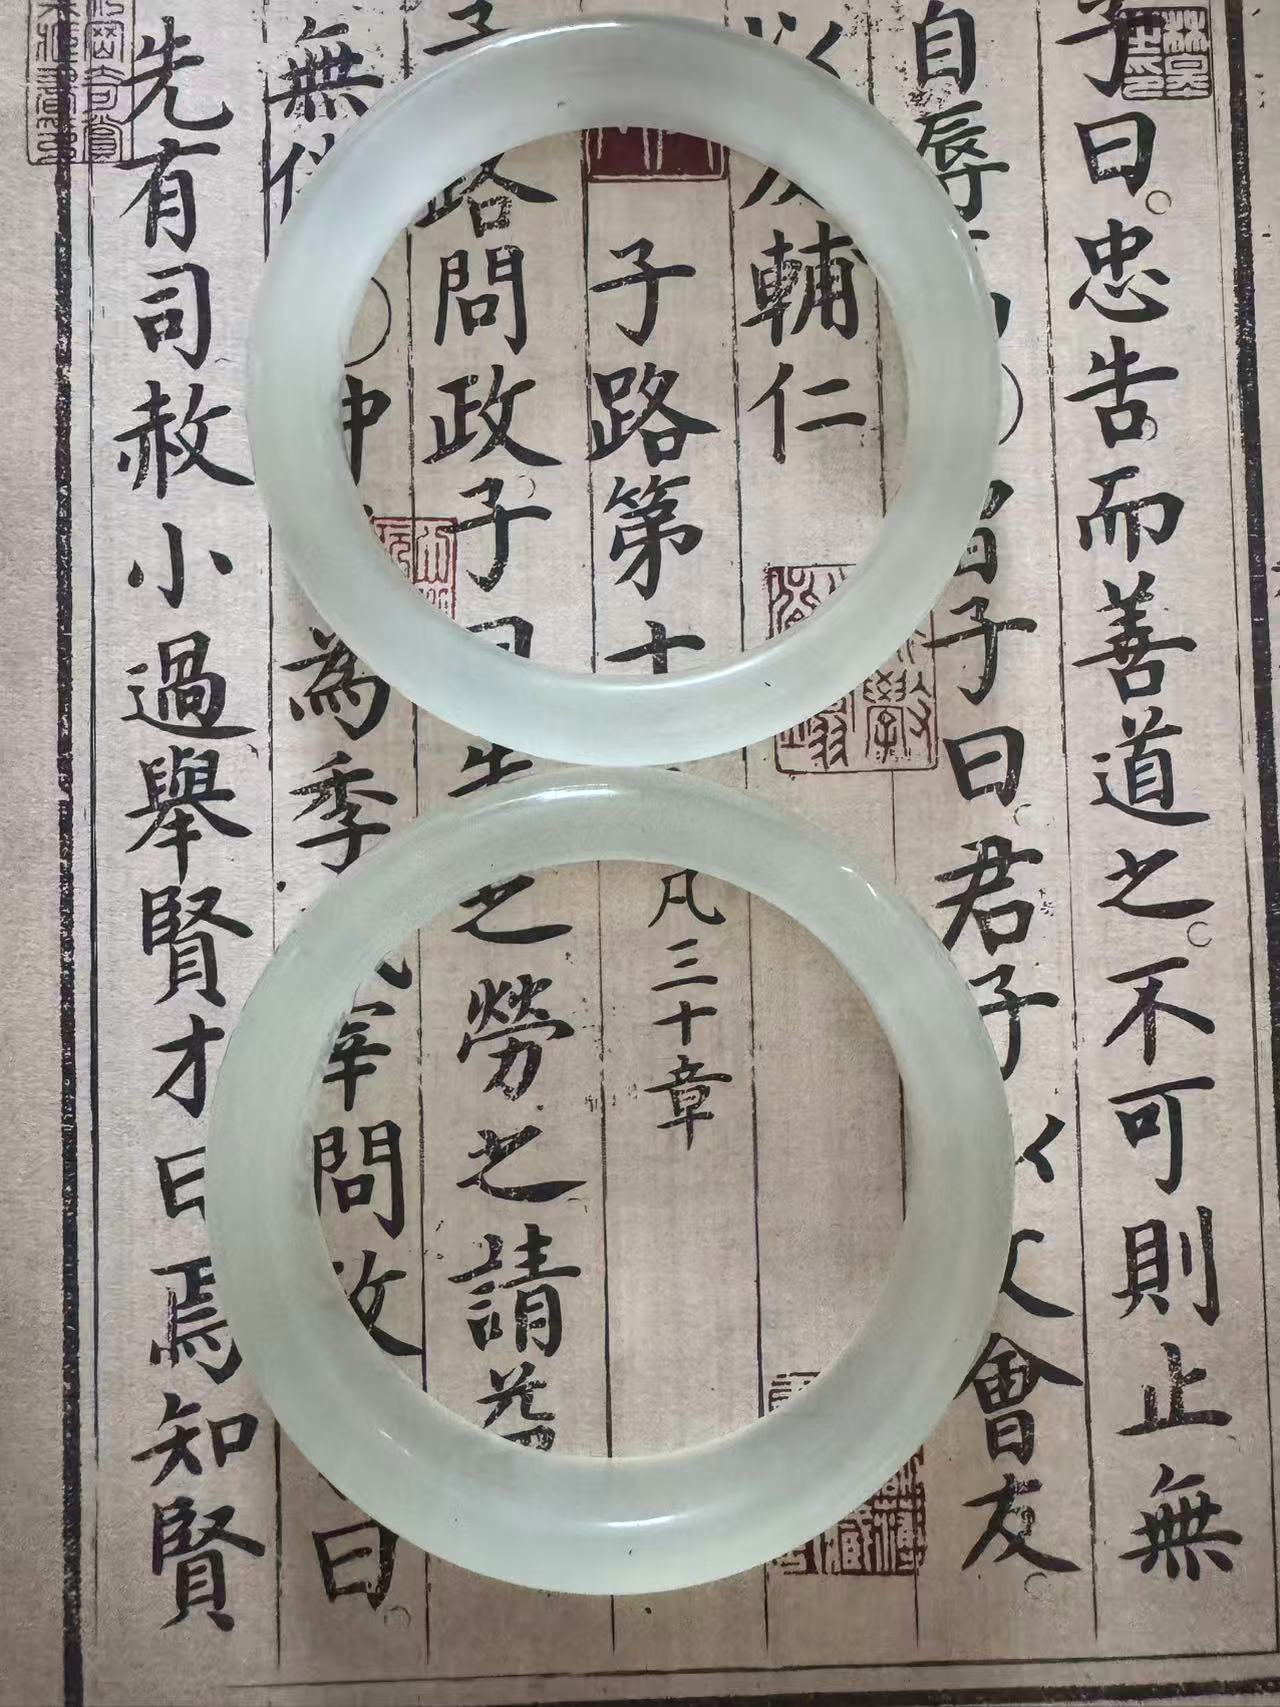 子曰。忠告而善道之。不可則止無
自辱
曾子曰。君子
會友
輔仁
子路第十
凡三十章
路問政子曰
之勞之請益
無
仲
為季
宰問政
曰。
先有司赦小過舉賢才曰焉知賢